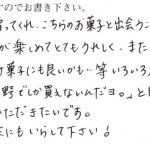 すのでお書き下さい。
習ってくれ、こちらのお菓子と出会うこ
が楽しめてとてもうれしく、また
け菓子にも良いかも…等いろいろ
野でしか買えないんだヨ。」と
ただきたいです。
にもいらして下さい!